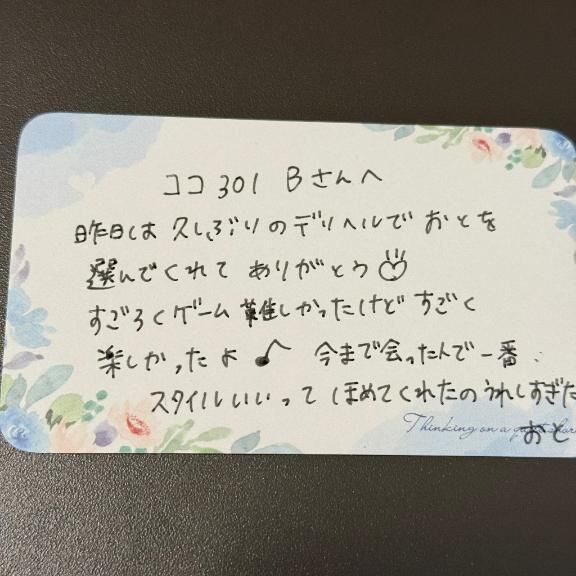 ココ301 Bさんへ
昨日は久しぶりのデリヘルでおとを
選んでくれてありがとう♡
すごろくゲーム難しかったけどすごく
楽しかったよ♪ 今まで会った人で一番
スタイルいいってほめてくれたのうれしすぎた
Thinking on a
おと